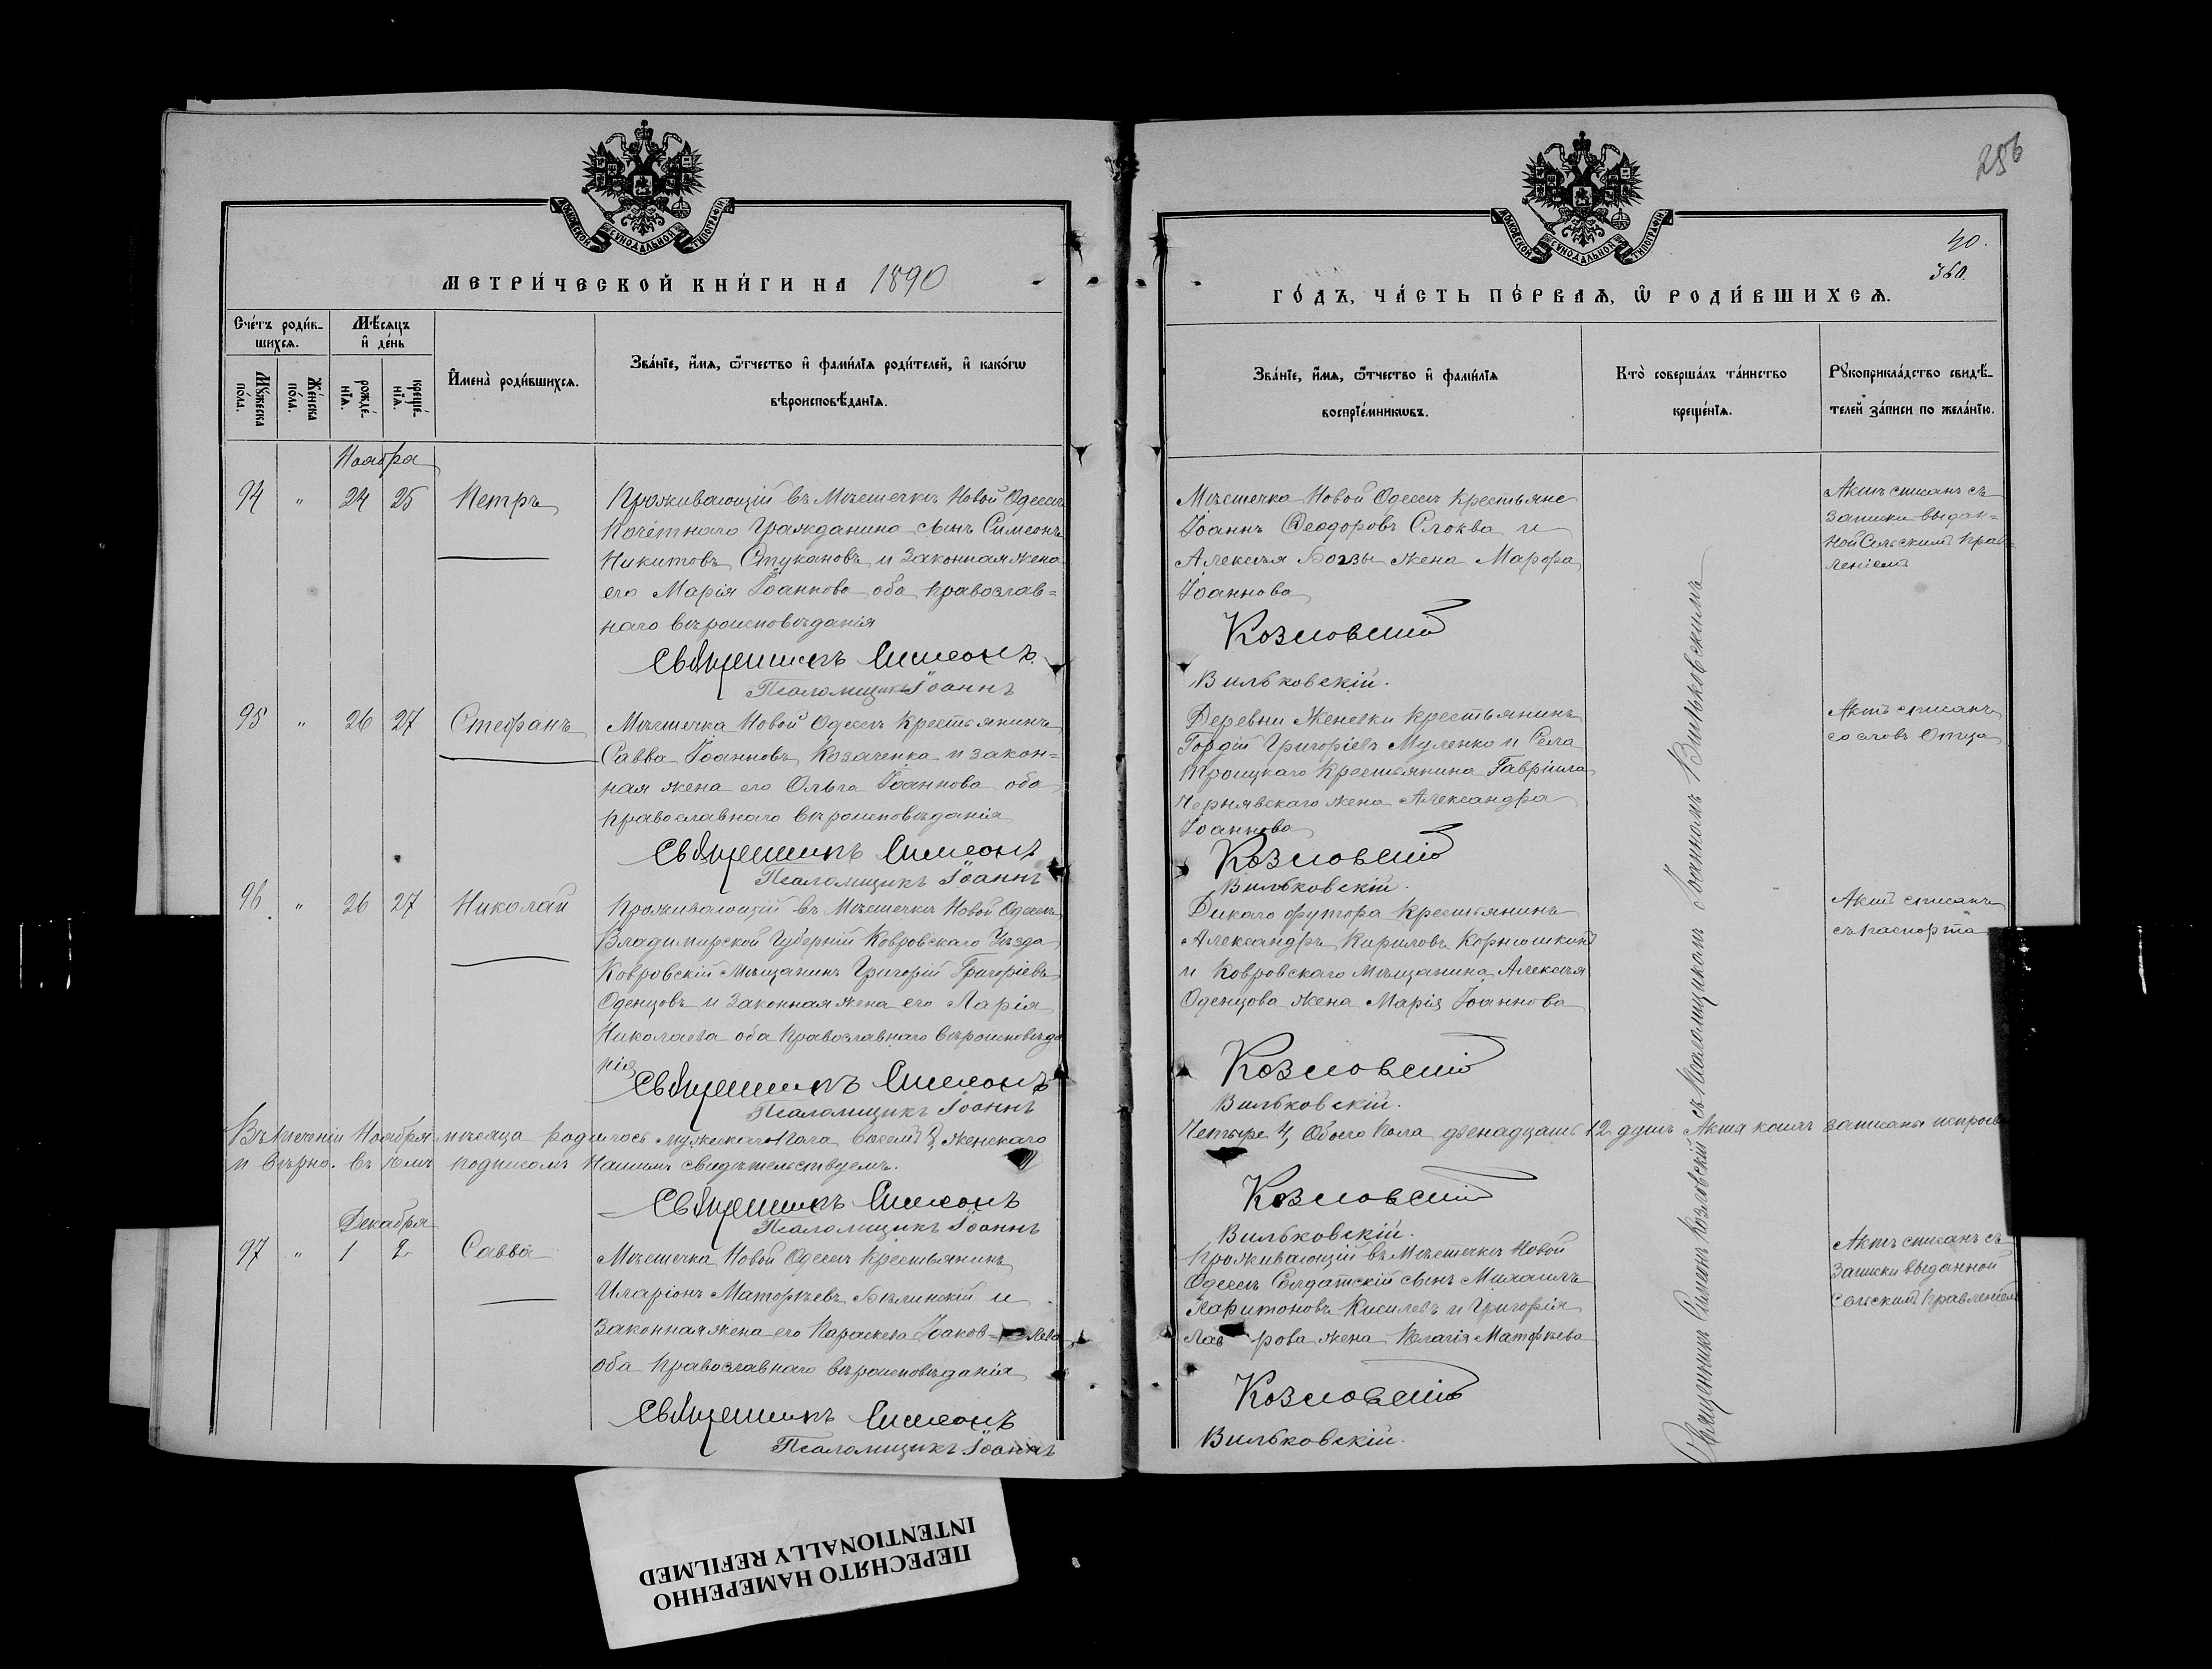 256
МОСКОВСКОЙ СѴНОДАЛЬНОЙ ТИПОГРАФІИ
МЕТРИ́ЧЕСКОЙ КНИ́ГИ НА 1890
Сче́тъ роди́в-
шихсѧ.
Мѣ́сѧцъ
и҆ де́нь
Мꙋ́жеска
по́ла.
Же́нска
по́ла.
рожде́-
нїѧ.
креще́-
нїѧ.
И҆мена̀ роди́вшихсѧ.
Зва́нїе, и҆́мѧ, ѻ҆́тчество и҆ фами́лїѧ роди́телей, и҆ како́гѡ
вѣроисповѣ́данїѧ.
Ноября
94 " 24 25 Петръ
Проживающій въ Мѣстечкѣ Новой Одессѣ
Почетного Гражданина сынъ Симеонъ
Никитовъ Стукановъ и Законная жена
его Марія Іоаннова оба православ=
наго вѣроисповѣданія
Священникъ Симеонъ
Псаломщикъ Іоаннъ
95 " 26 27 Стефанъ
Мѣстечка Новой Одессы Крестьянинъ
Савва Іоанновъ Козаченко и закон=
ная жена его Ольга Іоаннова оба
православнаго вѣроисповѣданія
Священникъ Симеонъ
Псаломщикъ Іоаннъ
96 " 26 27 Николай
Проживающій въ Мѣстечкѣ Новой Одессѣ
Владимирской Губерніи Ковровскаго Уѣзда
Ковровскій Мѣщанинъ Григорій Григоріевъ
Оденцовъ и Законная жена его Дарія
Николаева оба Православнаго вѣроисповѣда
нія
Священникъ Симеонъ
Псаломщикъ Іоаннъ
Въ теченіи Ноября мѣсяца родилось мужескаго пола восемь 8, Женскаго
и вѣрно. въ чемъ подписомъ Нашимъ свидѣтельствуемъ.
Священникъ Симеонъ
Псаломщикъ Іоаннъ
Декабря
97 " 1 2 Савва
Мѣстечка Новой Одессы Крестьянинъ
Иларіонъ Матфѣевъ Бѣлинскій и
Законная жена его Параскева Іаков лева
оба Православнаго вѣроисповѣданія
Священникъ Симеонъ
Псаломщикъ Іоаннъ
МОСКОВСКОЙ СѴНОДАЛЬНОЙ ТИПОГРАФІИ
40.
360.
ГО́ДЪ, ЧА́СТЬ ПЕ́РВАѦ, Ѡ҆ РОДИ́ВШИХСѦ.
Зва́нїе, и҆́мѧ, ѻ҆́тчество и҆ фами́лїѧ
воспрїе́мникѡвъ.
Кто̀ соверша́лъ та́инство
креще́нїѧ.
Рꙋкоприкла́дство свидѣ́-
телей за́писи по жела́нїю.
Мѣстечка Новой Одессы Крестьяне
Іоаннъ Ѳеодоровъ Слоква и
Алексѣя Богзы жена Марфа
Іоаннова
Козловскій
Вильковскій.
Актъ списанъ съ
записки выдан=
ной Сельскимъ Прав
леніемъ
Деревни Женевки Крестьянинъ
Гордій Григоріевъ Муленко и Села
Троицкаго Крестьянина Гавріила
Чернявскаго жена Александра
Іоаннова
Козловскій
Вильковскій.
Актъ списанъ
со словъ Отца
Дикаго футора Крестьянинъ
Александръ Кириловъ Корнюшкинъ
и Ковровскаго Мѣщанина Алексѣя
Оденцова жена Марія Іоаннова
Козловскій
Вильковскій.
Актъ списанъ
съ паспорта
Четыре 4, Обоего Пола двенадцать 12 душъ Акта коимъ записаны
Козловскій
Вильковскій.
Проживающій въ Мѣстечкѣ Новой
Одессѣ Солдатскій сынъ Михаилъ
Харитоновъ Кисилевъ и Григорія
Лав рова жена Пелагія Матфѣева
Козловскій
Вильковскій.
Актъ списанъ съ
Записки выданной
Сельскимъ Правленіемъ
Священникъ Симеонъ Козловскій съ Псаломщикомъ Іоанномъ Вильковскимъ
ПЕРЕСНЯТО НАМЕРЕННО
INTENTIONALLY REFILMED